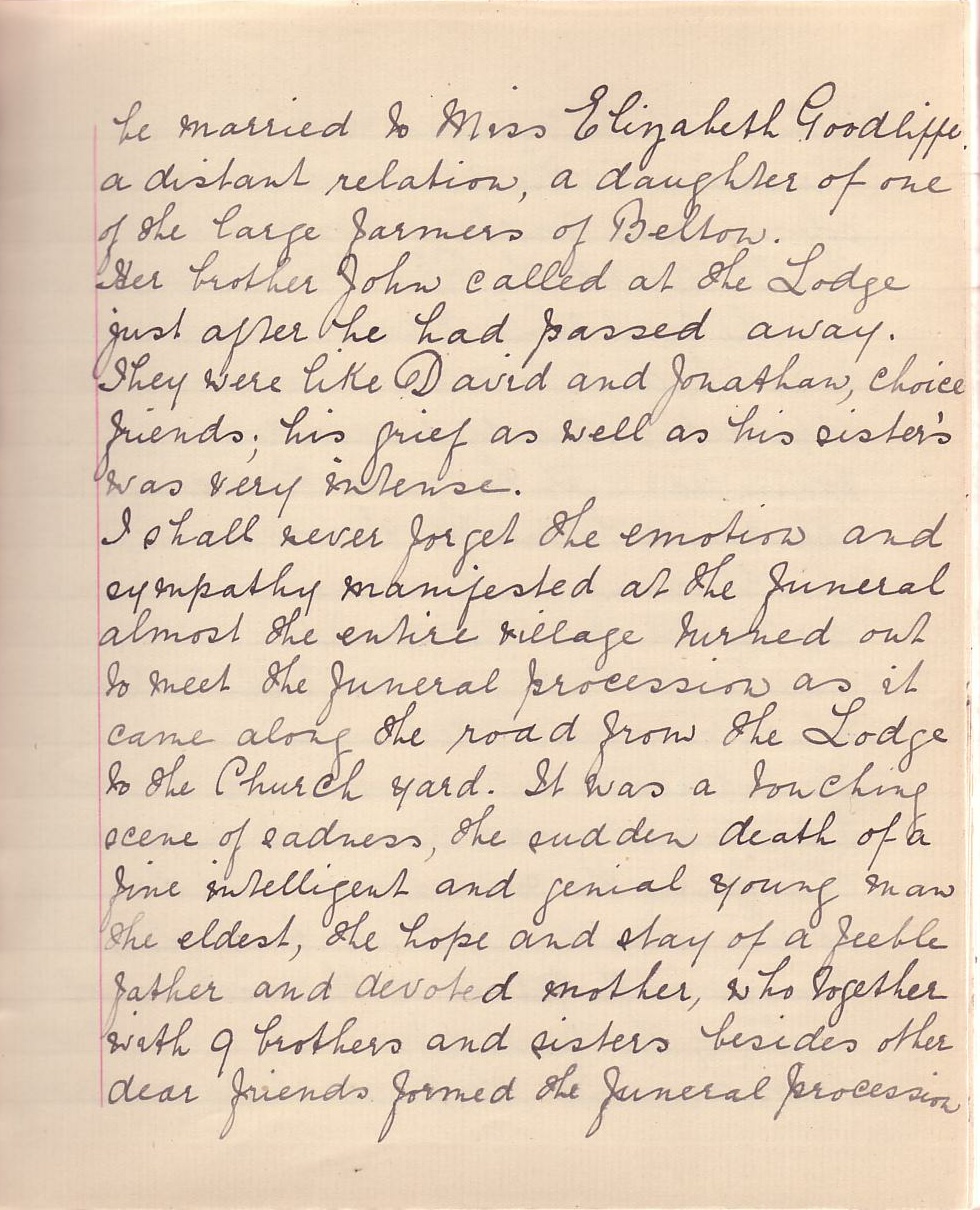 be married to Miss Elizabeth Goodliffe.
a distant relation, a daughter of one
of the large farmers of Belton.
Her brother John called at the Lodge
just after he had passed away.
They were like David and Jonathan, choice
friends; his grief as well as his sister's
was very intense.
I shall never forget the emotion and
sympathy manifested at the funeral
almost the entire village turned out
to meet the funeral procession as it
came along the road from the Lodge
to the Church yard. It was a touching
scene of sadness, the sudden death of a
fine intelligent and genial young man
the eldest, the hope and stay of a feeble
father and devoted mother, who together
with 9 brothers and sisters besides other
dear friends formed the funeral procession